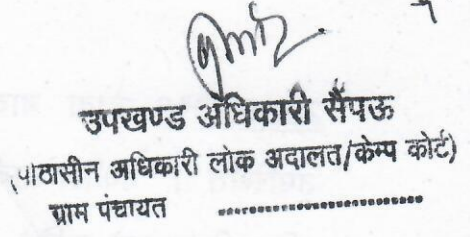 उपखण्ड अधिकारी सैंपऊ
(पीठासीन अधिकारी लोक अदालत/केम्प कोर्ट)
ग्राम पंचायत ........................